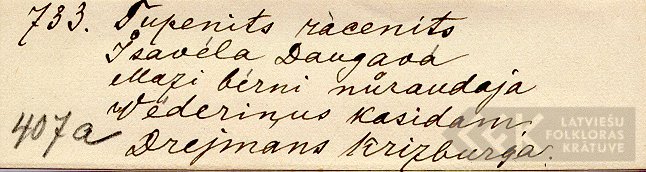 733. Tupenits ràcenits
Isavéla Daugavá
Mazi bérni nůraudaja
Vëderiņus kasidam
407a Drejmans Krizburgá.
LATVIEŠU
FOLKLORAS
KRĀTUVE